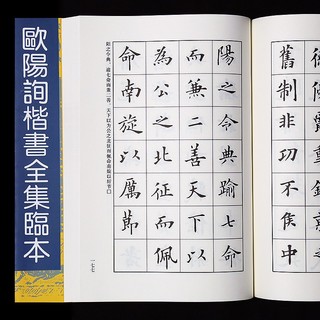 歐陽詢楷書全集臨本
舊制非功不侯中
陽之令典踰七命
而兼二善天下以
為公之北征而佩
命南旋以厲節
一七七